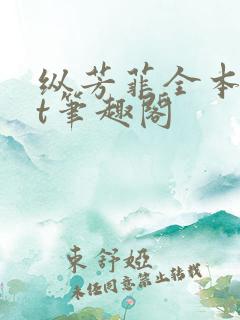 纵芳菲全本
t笔趣阁
東舒婭
未經同意禁止轉載